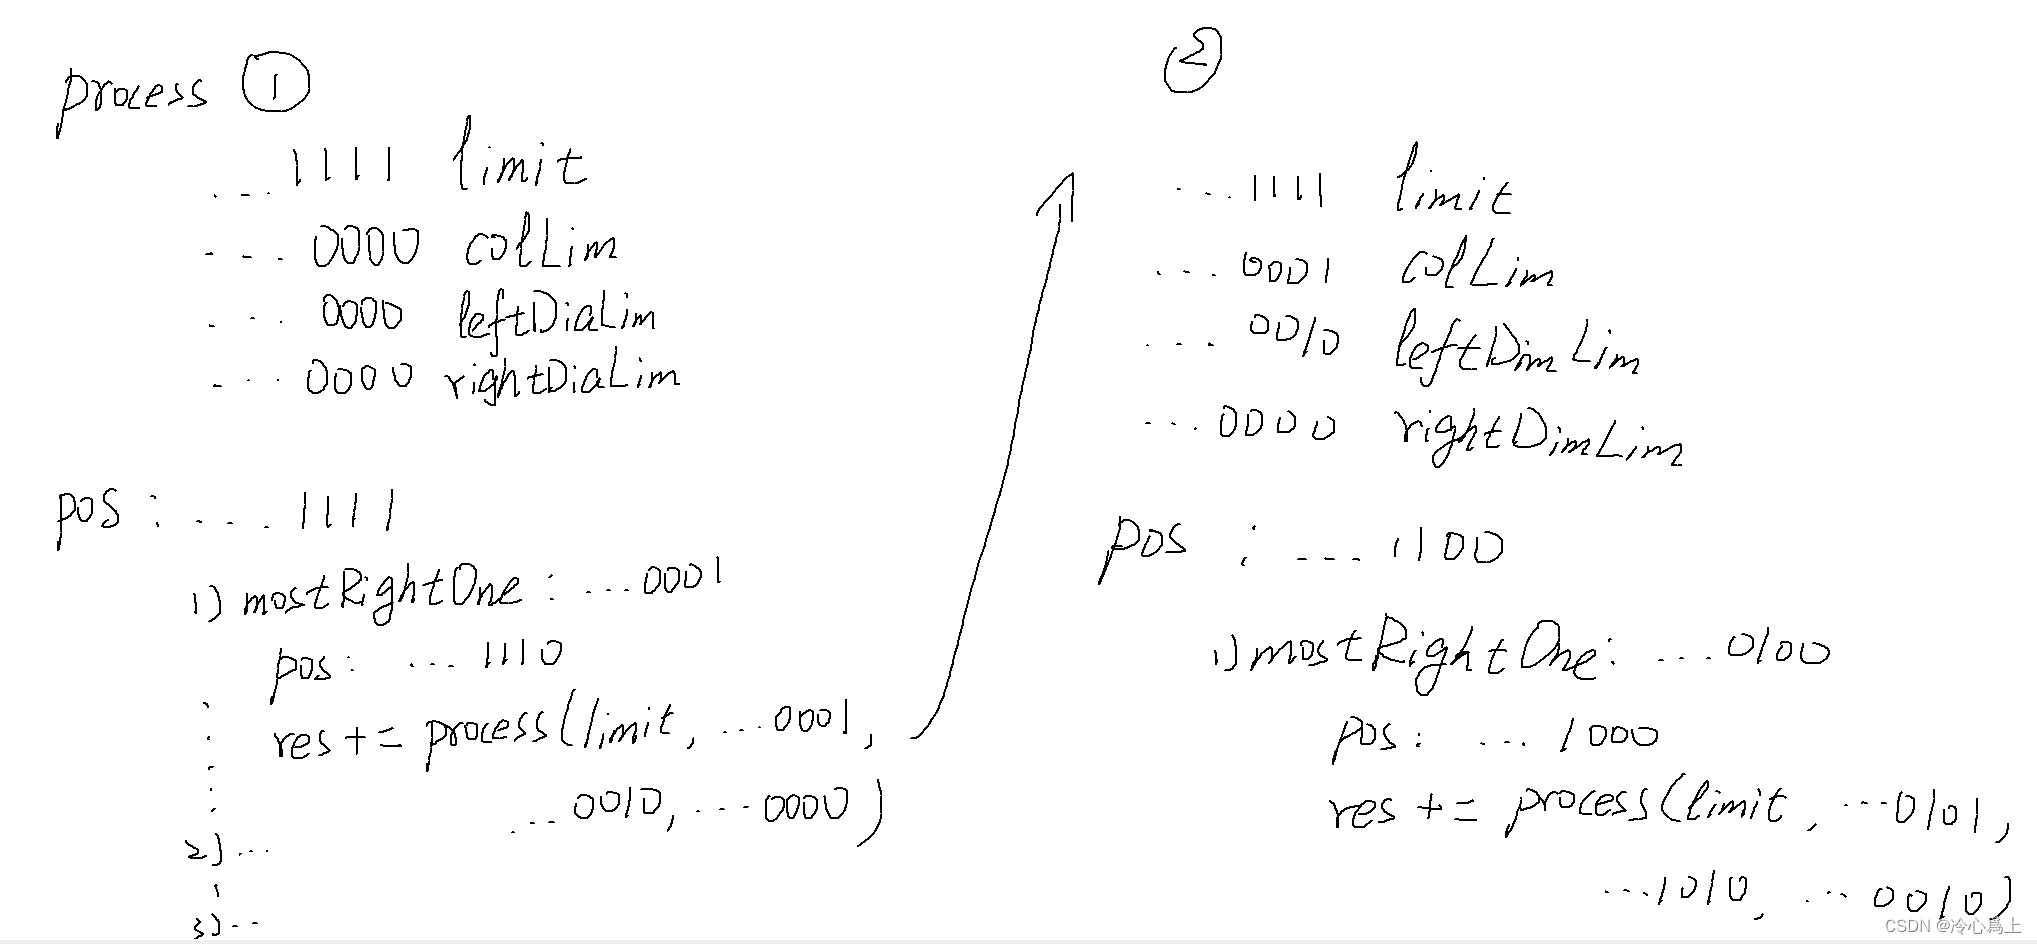 process ①
...1111 limit
...0000 colLim
...0000 leftDiaLim
...0000 rightDiaLim
pos : ...1111
1) mostRightOne : ...0001
pos : ...1110
res += process(limit, ...0001,
...0010, ...0000)
2) ...
3) ...
②
...1111 limit
...0001 colLim
...0010 leftDimLim
...0000 rightDimLim
pos : ...1100
1) mostRightOne : ...0100
pos : ...1000
res += process(limit, ...0101,
...1010, ...0010)
CSDN @冷心爲上